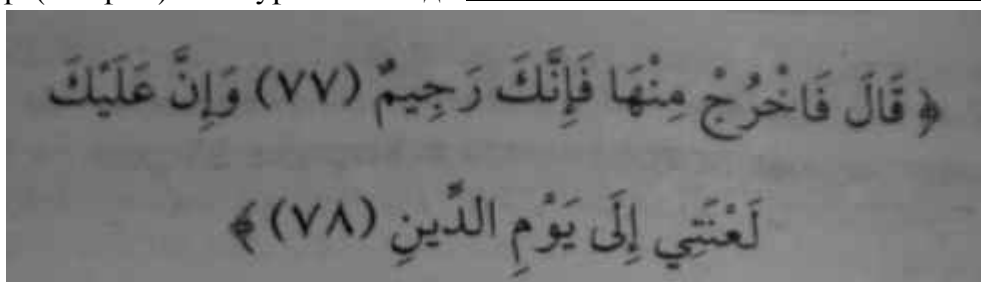 ﴿ قَالَ فَاخْرُجْ مِنْهَا فَإِنَّكَ رَجِيمٌ (٧٧) وَإِنَّ عَلَيْكَ
لَعْنَتِي إِلَى يَوْمِ الدِّينِ (٧٨) ﴾